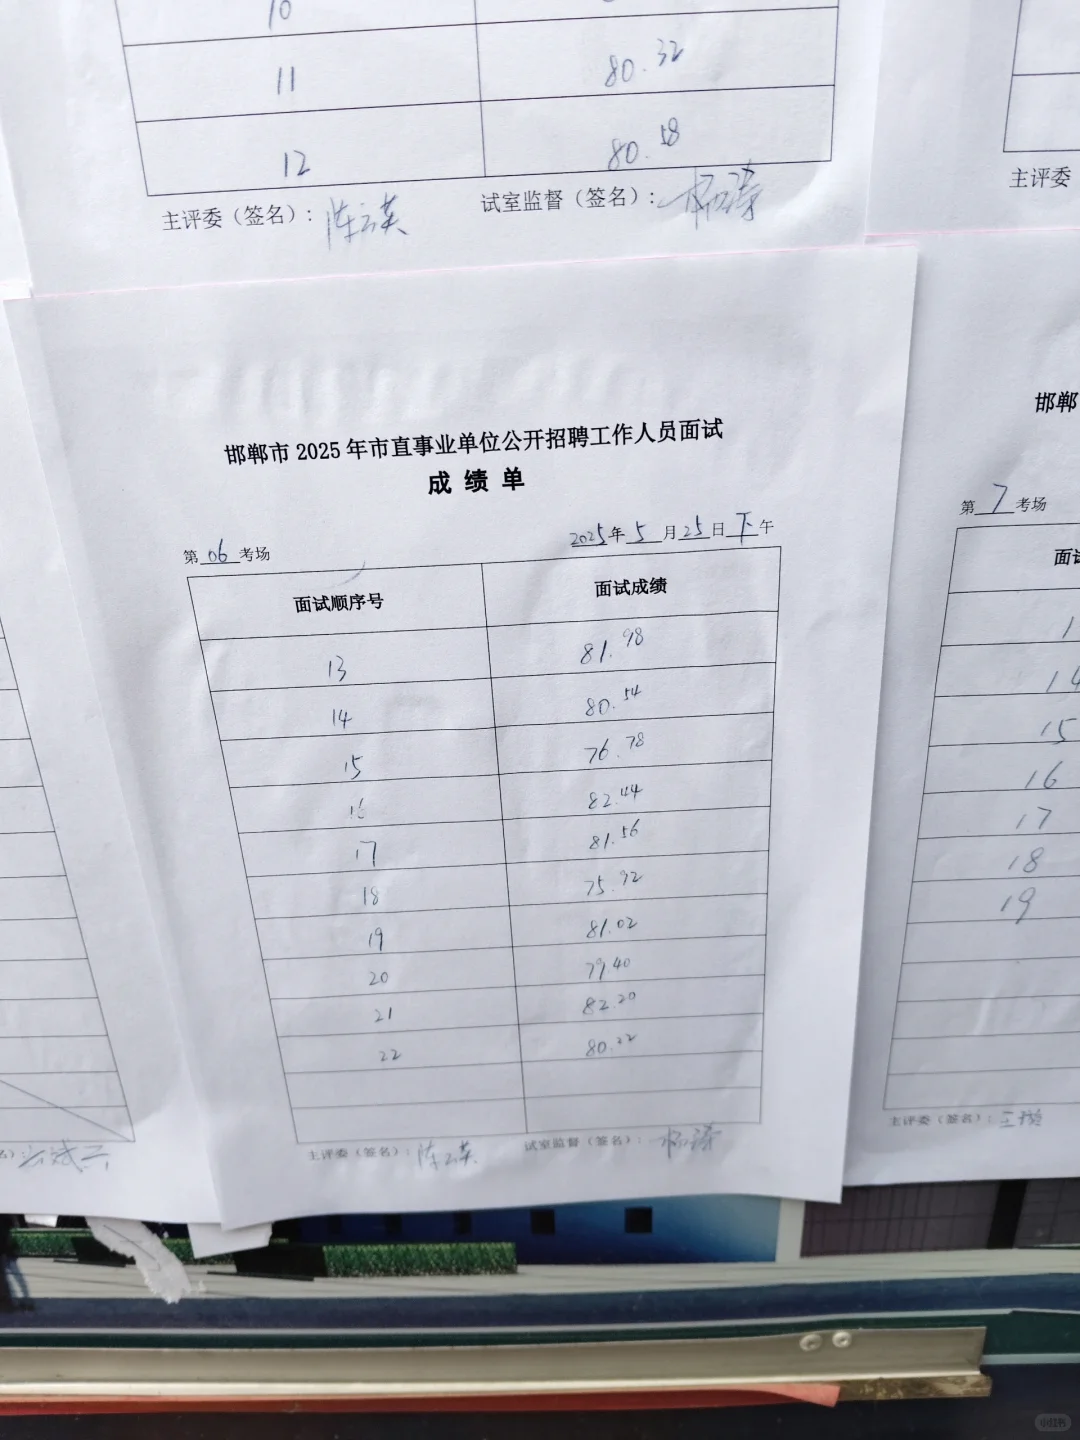 10
11 80.32
12 80.58
主评委（签名）：陈云英 试室监督（签名）：杨涛
主评委
邯郸市 2025 年市直事业单位公开招聘工作人员面试
成 绩 单
第 06 考场 2025年 5 月 25 日 下 午
面试顺序号 面试成绩
13 81.98
14 80.54
15 76.78
16 82.44
17 81.56
18 75.92
19 81.02
20 79.40
21 82.20
22 80.22
主评委（签名）：陈云英 试室监督（签名）：杨涛
邯郸
第 7 考场
面试
1
14
15
16
17
18
19
主评委（签名）：
小红书